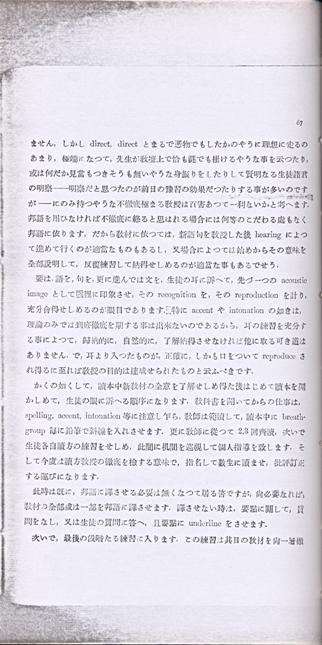 67
ません。しかし direct, direct とまるで悪物でもしたかのやうに理想に走るの
あまり、極端になつて、先生が教壇上で恰も謎でも掛けるやうな事を云つたり、
或は何だか見當もつきさうも無いやうな身振りをしたりして賢明なる生徒諸君
の明察――明察だと思つたのが前日の豫習の効果だつたりする事が多いのです
が――にのみ待つやうな不徹底極まる教授は百害あつて一利ないかと考へます。
邦語を用ひなければ不徹底に終ると思はれる場合には何等のこだわる處もなく
邦語に依ります。だから教材に依つては、新語句を教授した後 hearing によつ
て進めて行くのが適當なものもあるし、又場合によつては始めからその意味を
全部説明して、反覆練習して納得せしめるのが適當な事もあるでせう。
要は、語を、句を、更に進んでは文を、生徒の耳に訴へて、先づ一つの acoustic
image として腦裡に印象させ、その recognition を、その reproduction を計り、
充分合得せしめるのが眼目であります。特に accent や intonation の如きは、
理論のみでは到底徹底を期する事は出來ないのであるから、耳の練習を充分す
る事によつて、歸納的に、自然的に、了解納得させなければ他に取る可き道は
ありません。で、耳より入つたものが、正確に、しかも口をついて reproduce さ
れ得るに至れば教授の目的は達成せられたものと云ふべきです。
かくの如くして、讀本中新教材の全意を了解せしめ得た後はじめて讀本を開
かしめて、生徒の眼に訴へる順序になります。教科書を開いてからの仕事は、
spelling, accent, intonation 等に注意し乍ら、教師は範讀して、讀本中に breath-
group 毎に鉛筆で斜線を入れさせます。更に教師に從つて 2.3 回齊讀、次いで
生徒各自讀方の練習をせしめ、此間に机間を巡視して個人指導を致します。そ
して今度は讀方教授の徹底を檢する意味で、指名して數生に讀ませ、批評訂正
する運びになります。
此時は既に、邦語に譯させる必要は無くなつて居る筈ですが、尚必要なれば、
教材の全部或は一部を邦語に譯させます。譯させない時は、要點に關して、質
問をなし、又は生徒の質問に答へ、且要點に underline をさせます。
次いで、最後の段階たる練習に入ります。この練習は其日の教材を尚一層徹